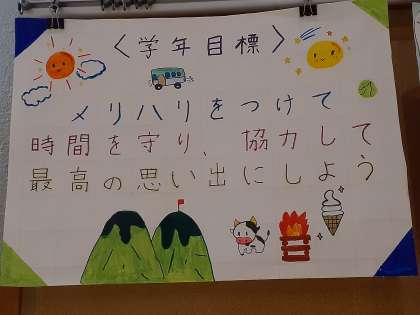 〈学年目標〉
メリハリをつけて
時間を守り、協力して
最高の思い出にしよう